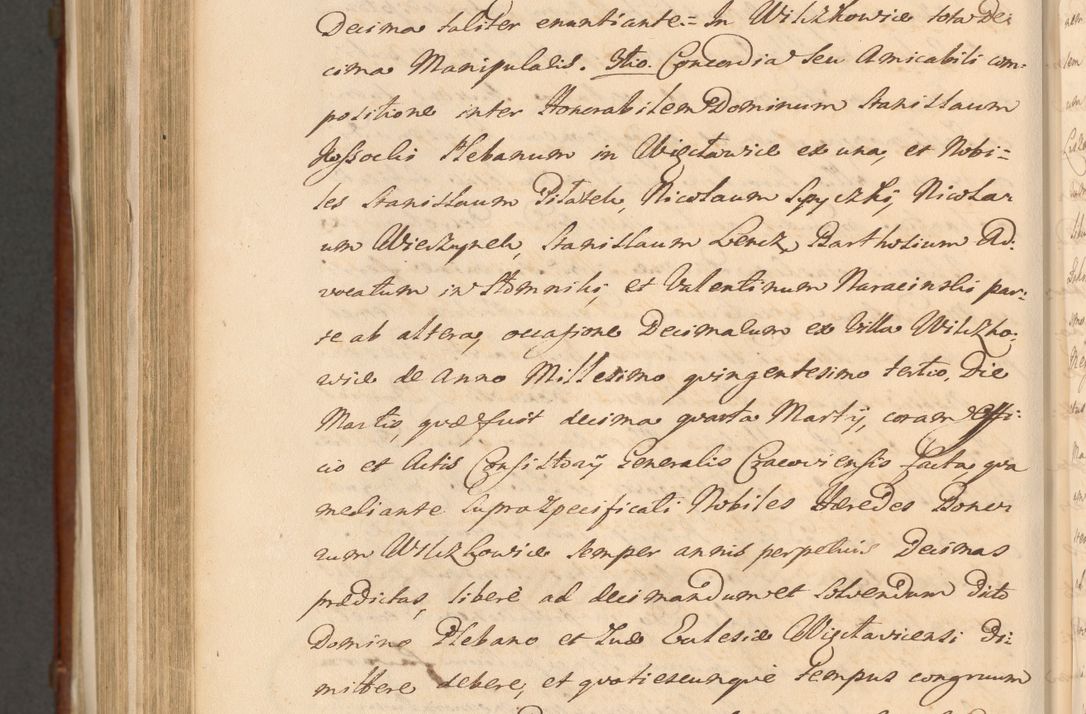 Decima taliter enuntiante = In Wilczkowice tota De=
cima Manipulalis. 3tio. Concordia seu Amicabili com=
positione inter Honorabilem Dominum Stanislaum
Plebanum in Więcławice ex una, et Nobi=
les Stanislaum Pilatek, Nicolaum Spyczki, Nicola=
um Wierzynek, Stanislaum Lencz, Bartholium Ad=
vocatum in Słomniki, et Valentinum Naracinski par=
te ab altera, occasione Decimalum ex Villa Wilczko=
wice de Anno Millesimo quingentesimo tertio, Die
Martis, quæ fuit decima quarta Martij, coram Offi=
cio et Actis Consistorij Generalis Cracoviensis facta, qva
mediante supraspecificati Nobiles Hæredes Bono=
rum Wilczkowice semper annis perpetuis Decimas
prædictas, liberè ad decimandum et solvendum Dicto
Domino Plebano et suæ Eclesiæ Więctavicensi Di=
mittere debere, et qvotiescunqve tempus congruum